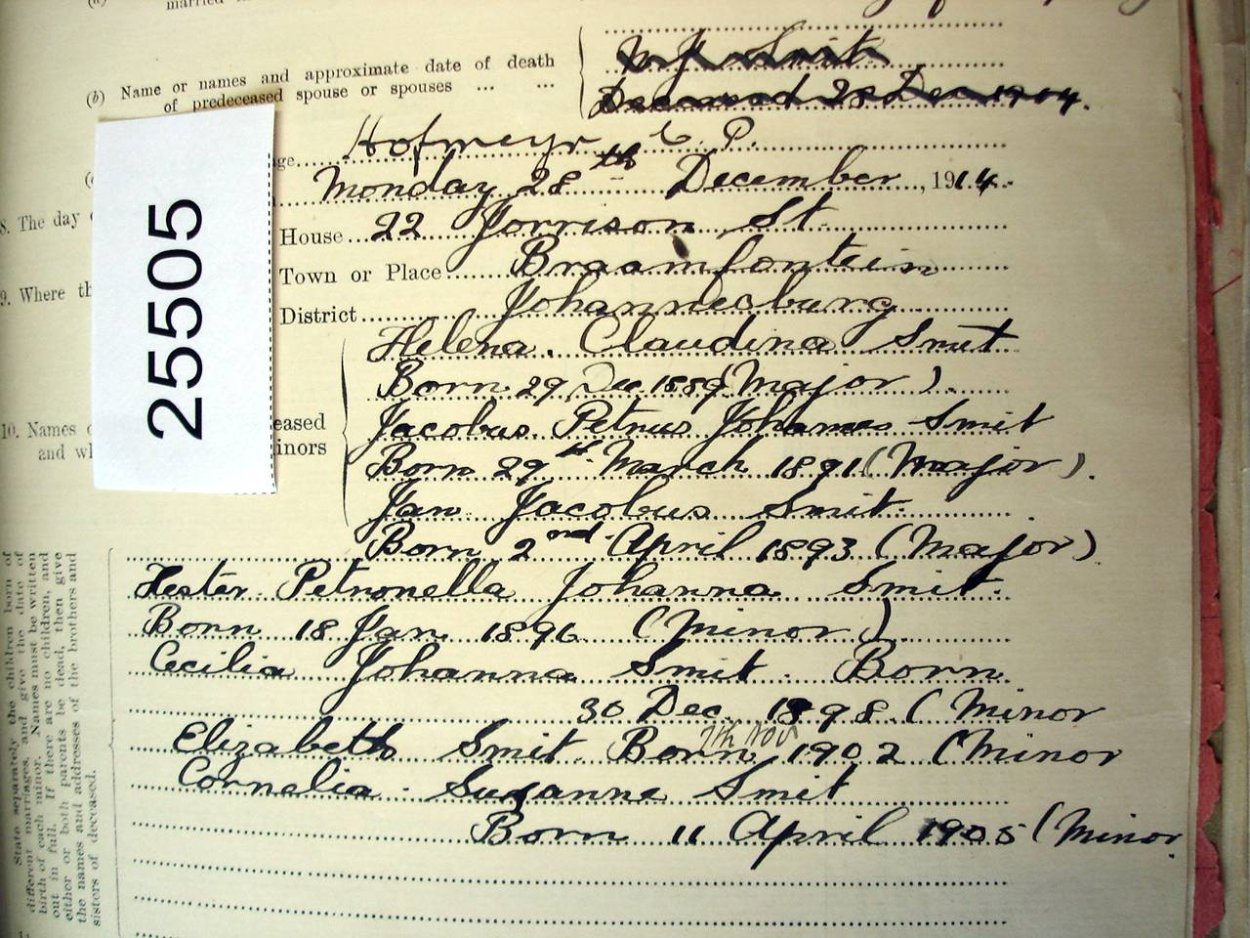 married
(b) Name or names and approximate date of death
of predeceased spouse or spouses ... ...
Smit
Deceased 28 Dec 1904.
Hofmeyr C. P.
Monday 28th December, 1914.
8. The day
House 22 Jorrison St.
Town or Place Braamfontein
9. Where th
District Johannesburg
Helena. Claudina Smit
Born 29 Dec 1889 (Major).
10. Names
eased
Jacobus Petrus Johannes Smit
and wh
inors
Born 29th March 1891 (Major).
Jan Jacobus Smit.
Born 2nd April 1893 (Major)
Hester Petronella Johanna Smit.
Born 18 Jan 1896 (Minor)
Cecilia Johanna Smit. Born
30 Dec. 1898. (Minor
Elizabeth Smit Born 7th Nov 1902 (Minor
Cornelia Susanne Smit
Born 11 April 1905 (Minor
25505
State separately the children born of
different marriages, and give the date of
birth of each minor. Names must be written
out in full. If there are no children, and
either or both parents be dead, then give
the names and addresses of the brothers and
sisters of deceased.